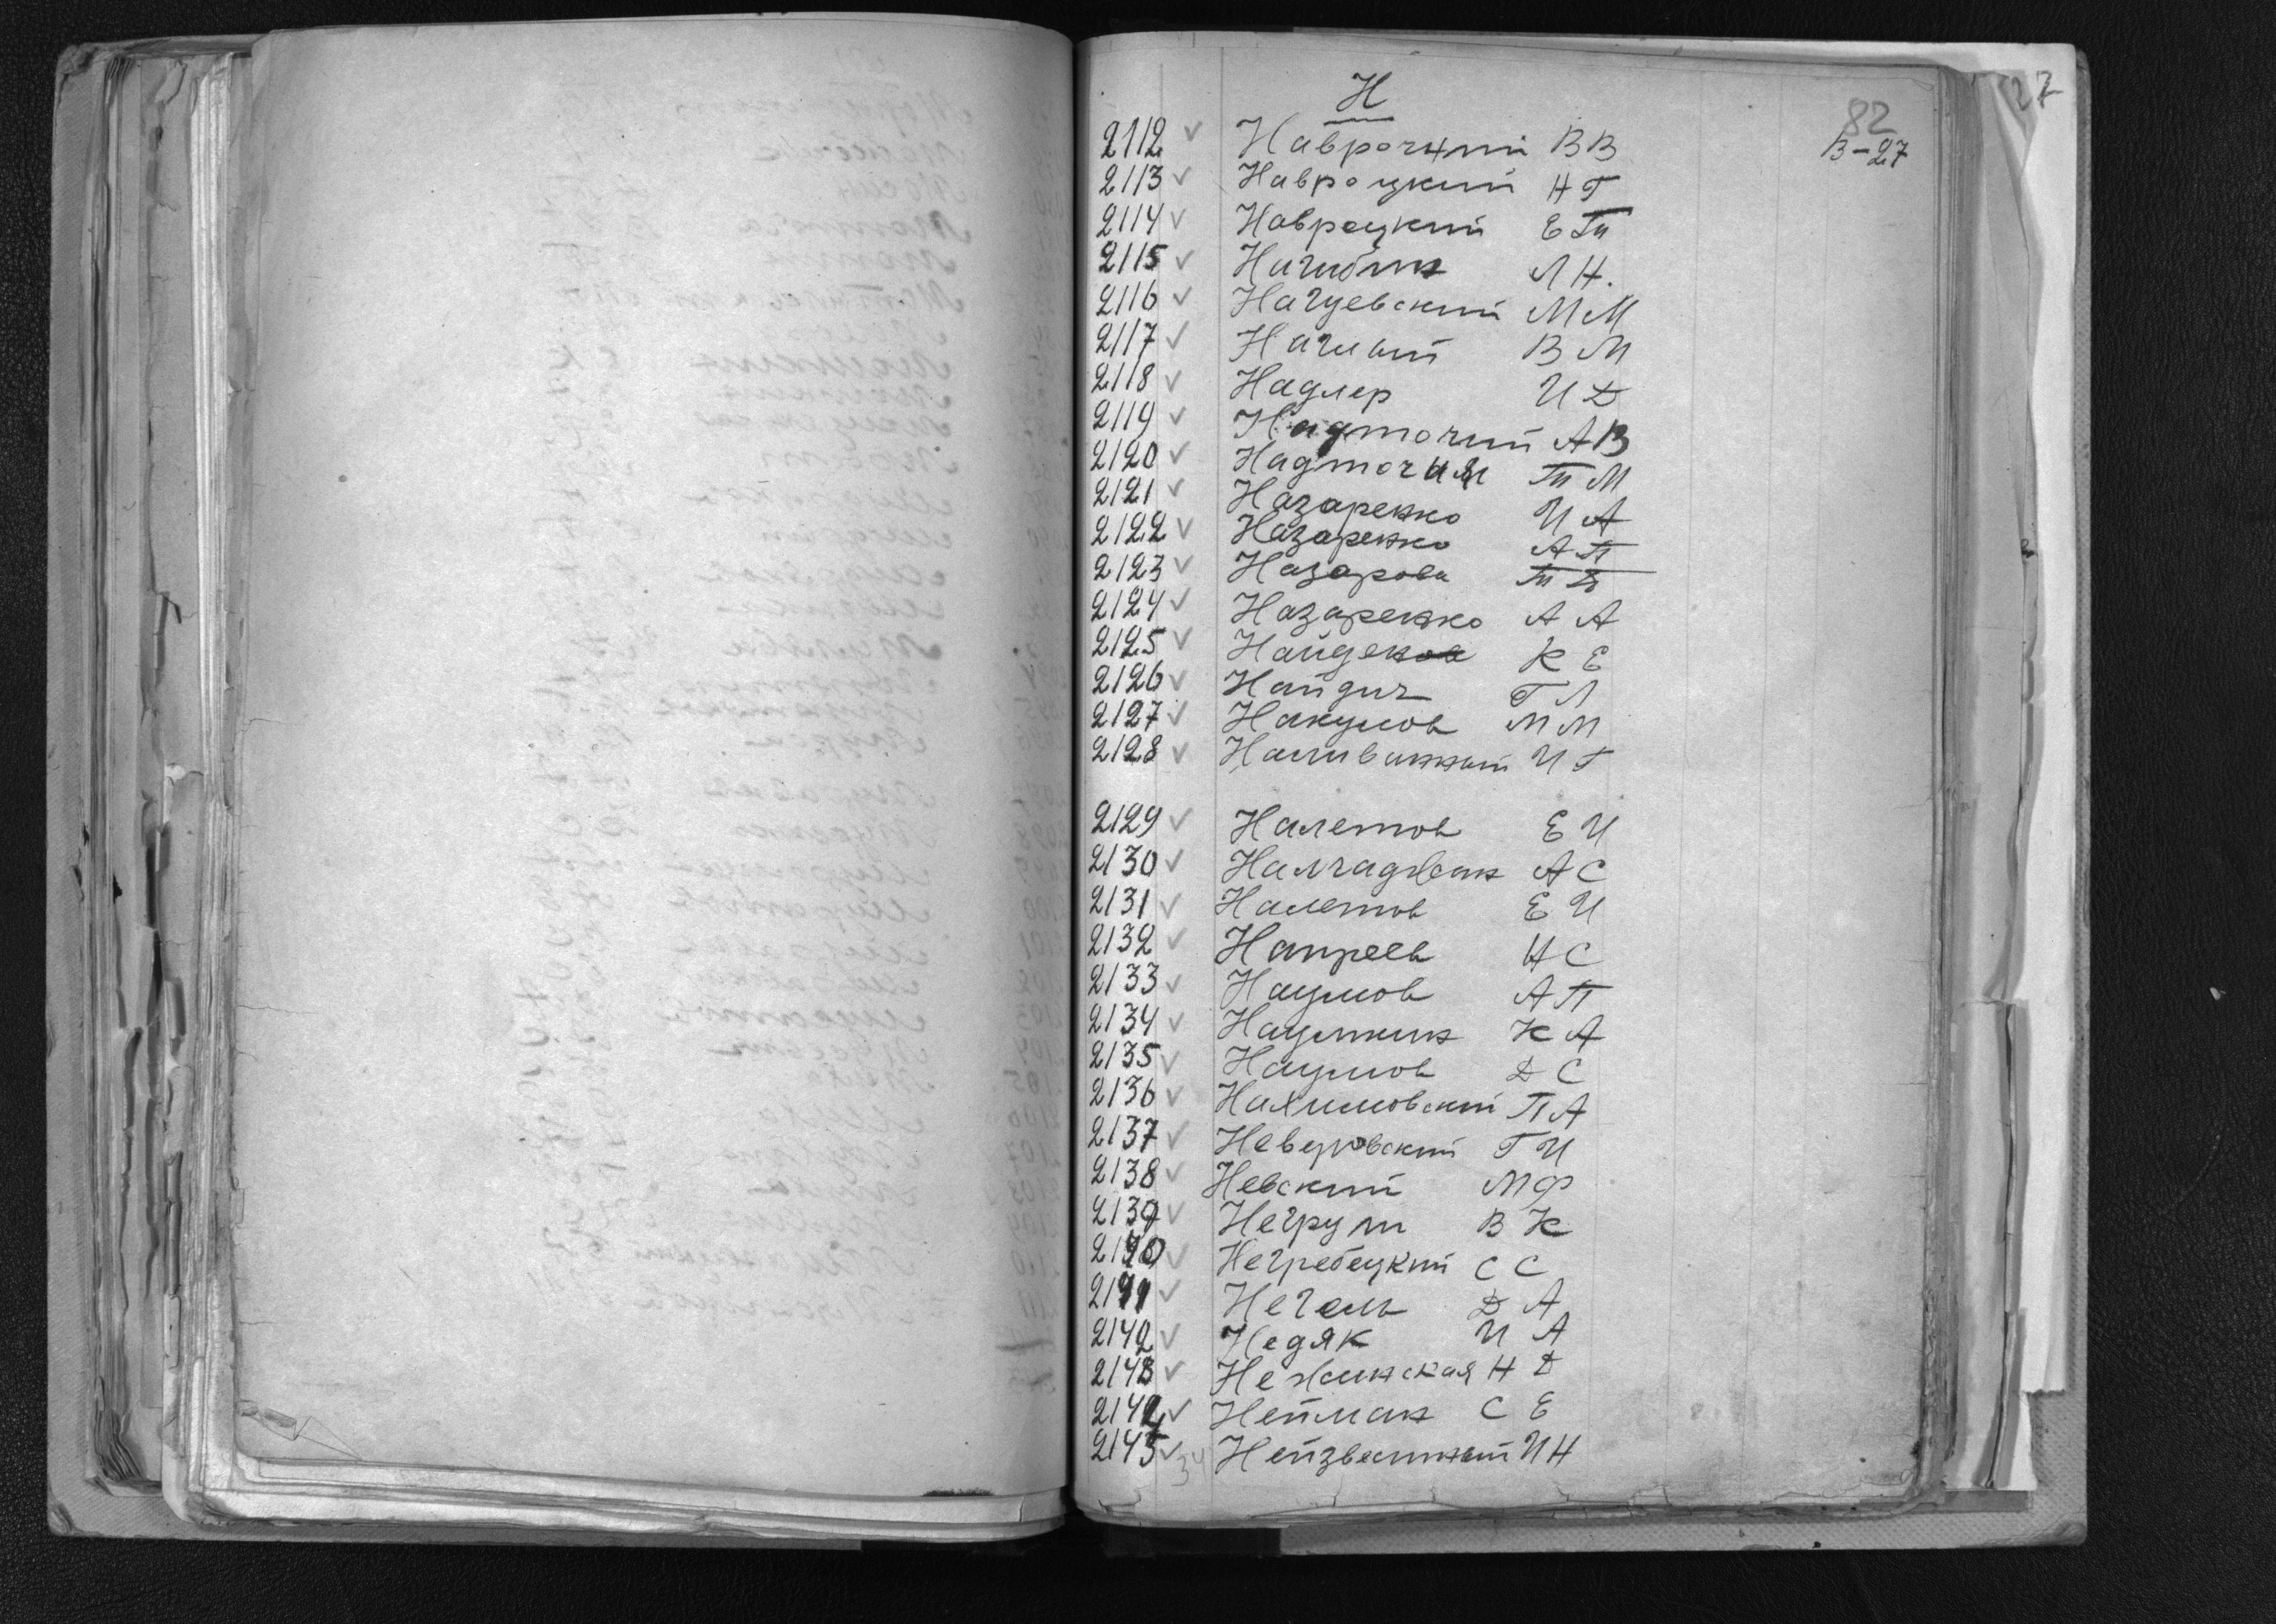 27
Н
82
В-27
2112 ✓ Наврочний В В
2113 ✓ Навроцкий Н Г
2114 ✓ Навроцкий Е Т
2115 ✓ Нагибин Л Н.
2116 ✓ Нагуевский М М
2117 ✓ Нагный В М
2118 ✓ Надлер И Д
2119 ✓ Надточий А В
2120 ✓ Надточия Т М
2121 ✓ Назаренко И А
2122 ✓ Назаренко А П
2123 ✓ Назарова Т
2124 ✓ Назаренко А А
2125 ✓ Найденов К Е
2126 ✓ Найдич Г Л
2127 ✓ Накумов М М
2128 ✓ Наливанный И Г
2129 ✓ Налетов Е И
2130 ✓ Налчаджан А С
2131 ✓ Налетов Е И
2132 ✓ Напреев И С
2133 ✓ Наумов А П
2134 ✓ Наумкин К А
2135 ✓ Наумов Д С
2136 ✓ Нахимовский П А
2137 ✓ Неверовский Г И
2138 ✓ Невский М Ф
2139 ✓ Негруш В К
2140 ✓ Негребецкий С С
2141 ✓ Негель Д А
2142 ✓ Недяк И А
2143 ✓ Нежинская Н Д
2144 ✓ Нейман С Е
2145 ✓ 34 Неизвестный И Н